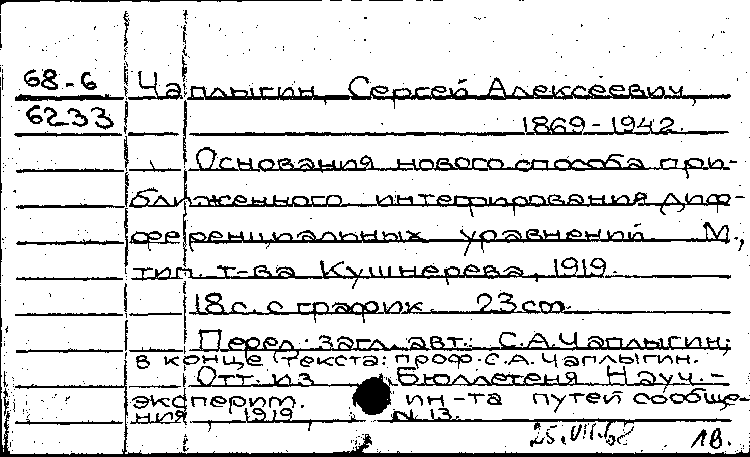 68-6 Чаплыгин, Сергей Алексеевич,
6233 1869-1942.
Основания нового способа при-
ближенного интегрирования диф-
ференциальных уравнений. М.,
тип. т-ва Кушнерева, 1919.
18 с. с график. 23 cm.
Перед загл. авт.: С.А.Чаплыгин;
в конце текста: проф. С.А. Чаплыгин.
Отт. из Бюллетеня Науч.-
эксперим. ин-та путей сообще-
ния, 1919, N 13.
25.VII.68 1в.